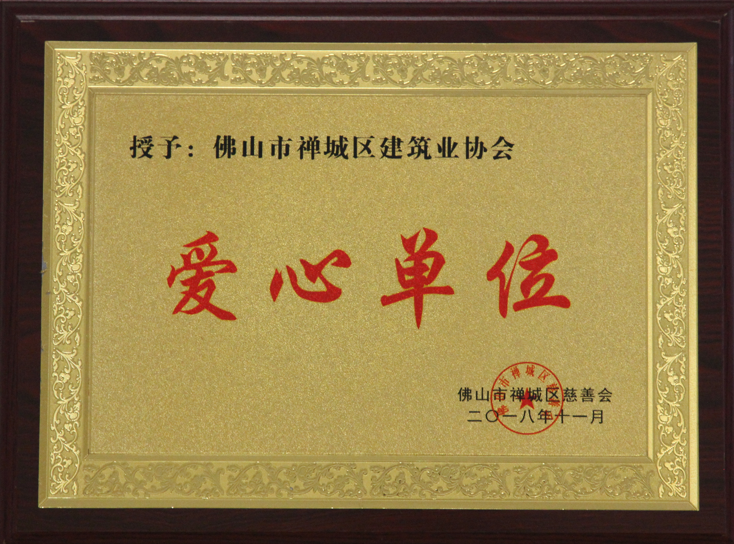 授予：佛山市禅城区建筑业协会
爱心单位
佛山市禅城区慈善会
二〇一八年十一月